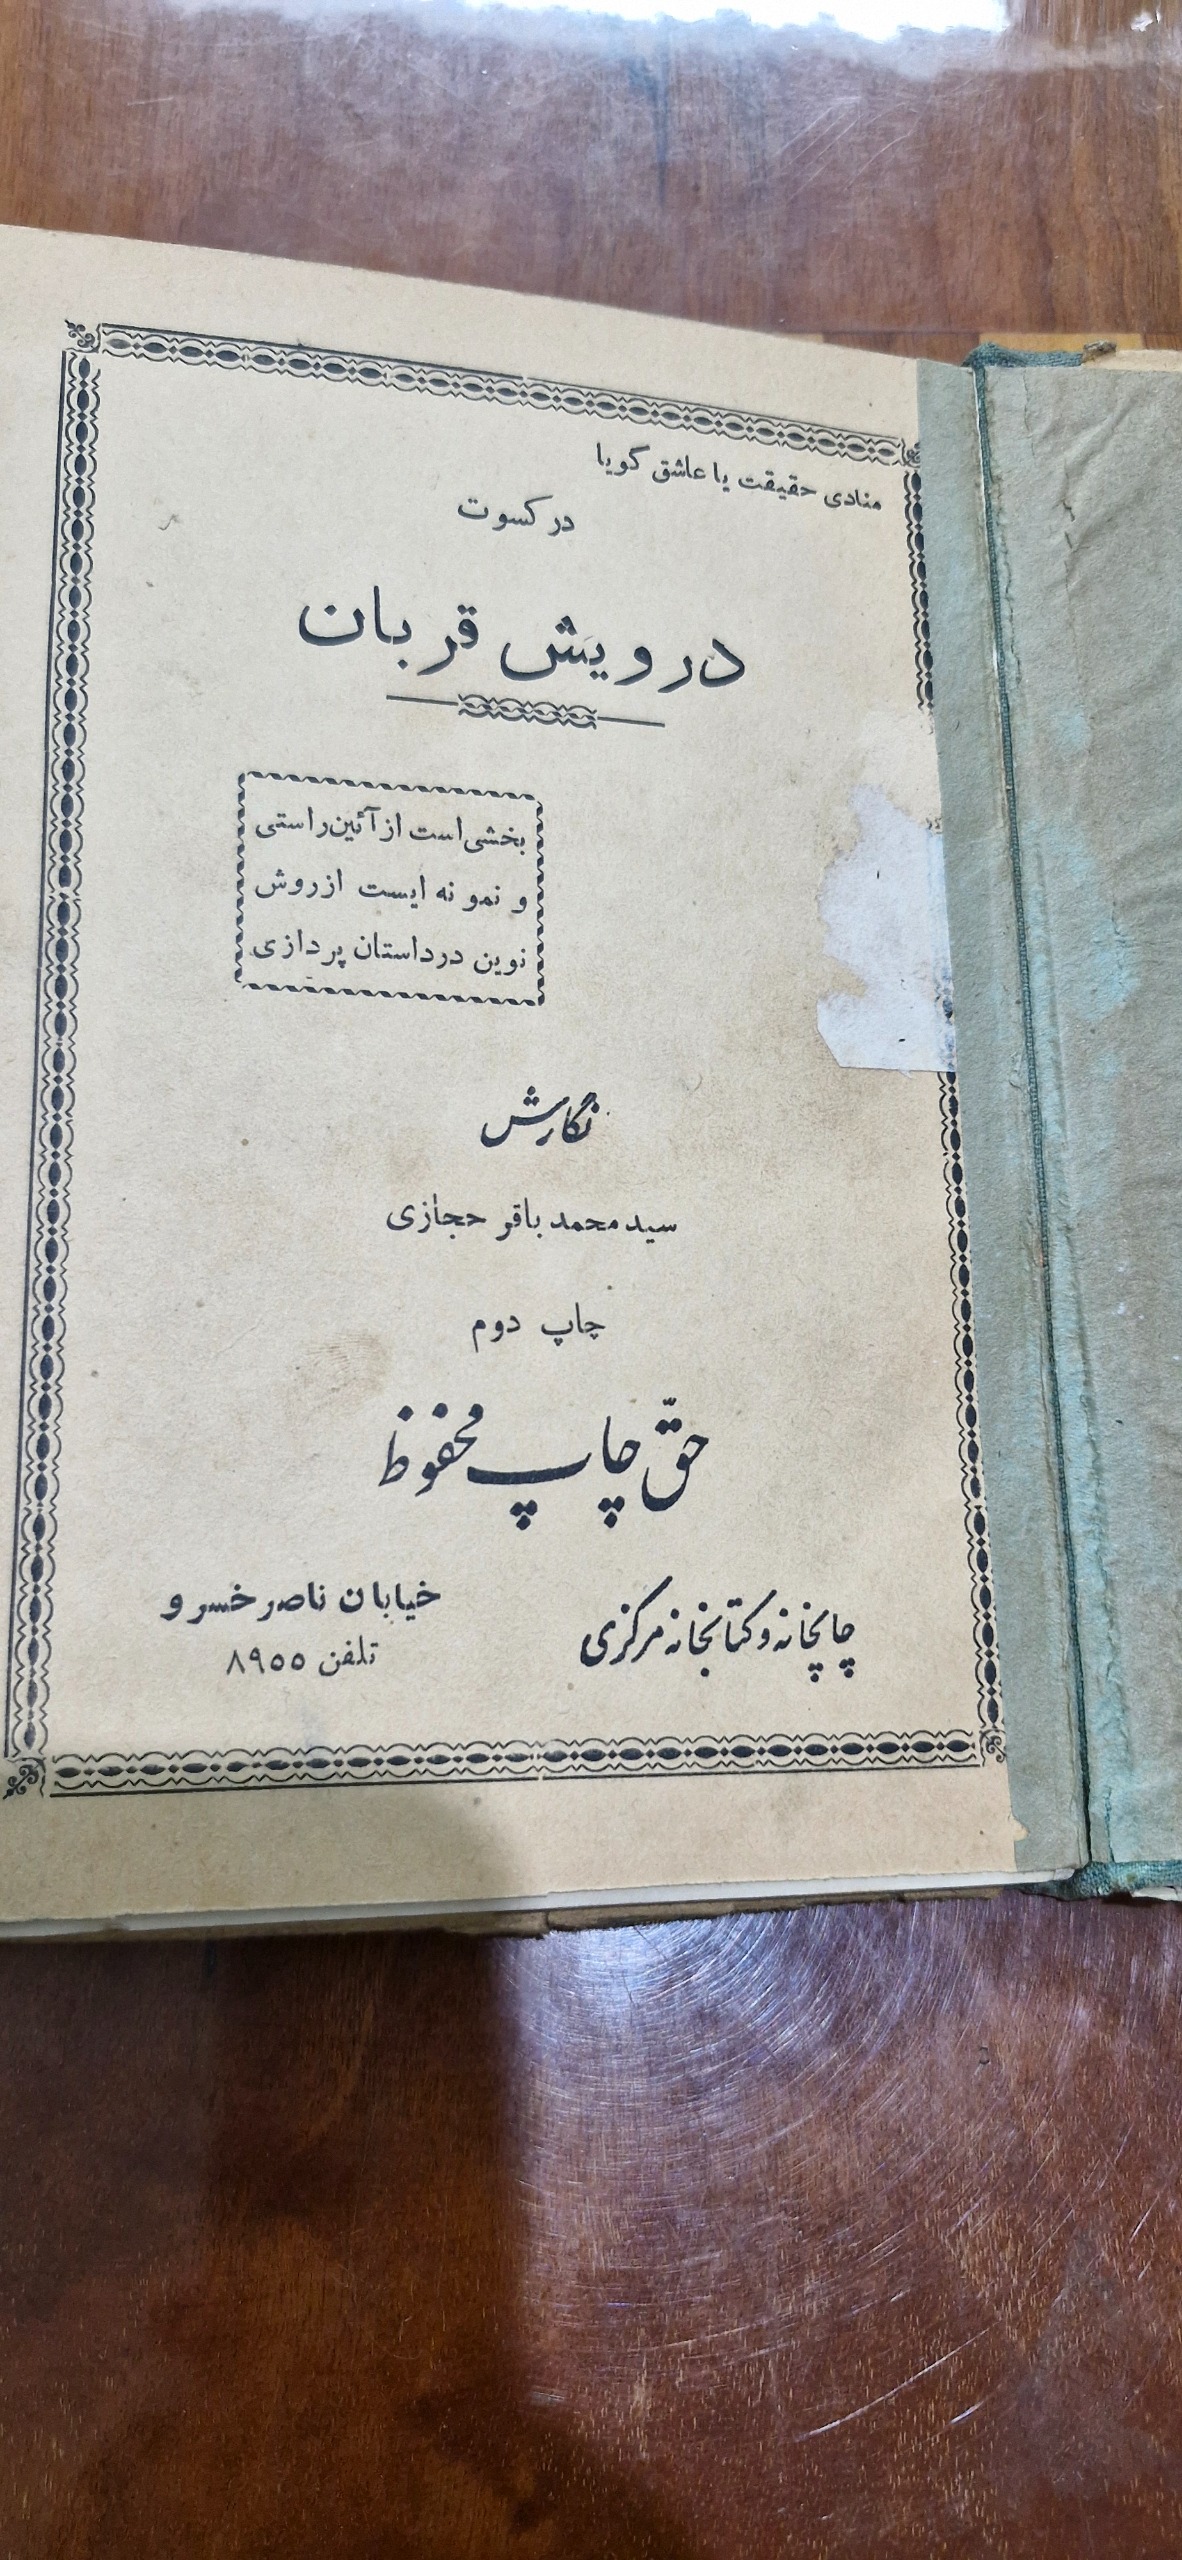 منادی حقیقت یا عاشق گویا
در کسوت
درویش قربان
بخشی است از آئین راستی
و نمونه ایست از روش
نوین در داستان پردازی
نگارش
سید محمد باقر حجازی
چاپ دوم
حقّ چاپ محفوظ
چاپخانه و کتابخانه مرکزی
خیابان ناصر خسرو
تلفن ۸۹۵۵